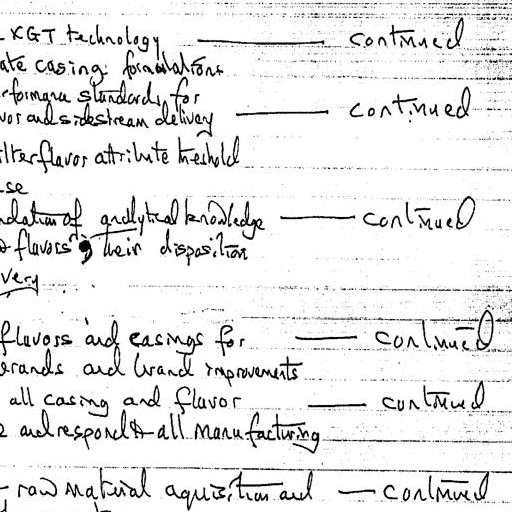 XGT technology —— continued
ate casing formulations
rformance standards for
vor and sidestream delivery —— continued
ilter flavor attribute threshold
se
ndation of analytical knowledge —— continued
flavors, their disposition
very
flavors and casings for —— continued
brands and brand improvements
all casing and flavor —— continued
and respond to all manufacturing
raw material aquisition and — continued